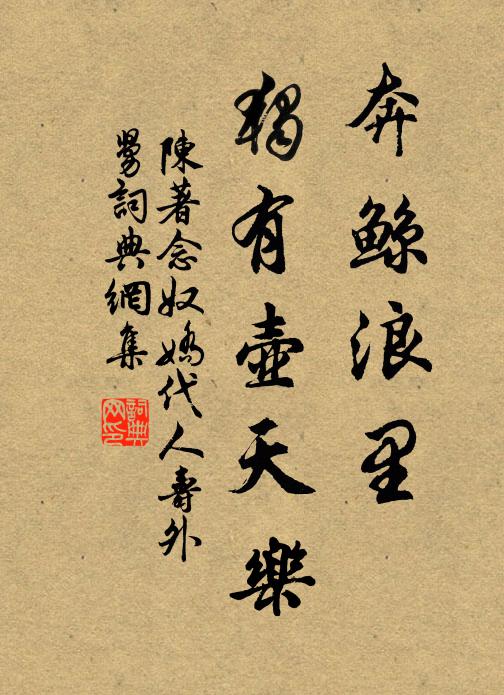 奔鲸浪里
独有壶天樂
陳著念奴嬌代人壽外
舅詞典網集
詞典网印